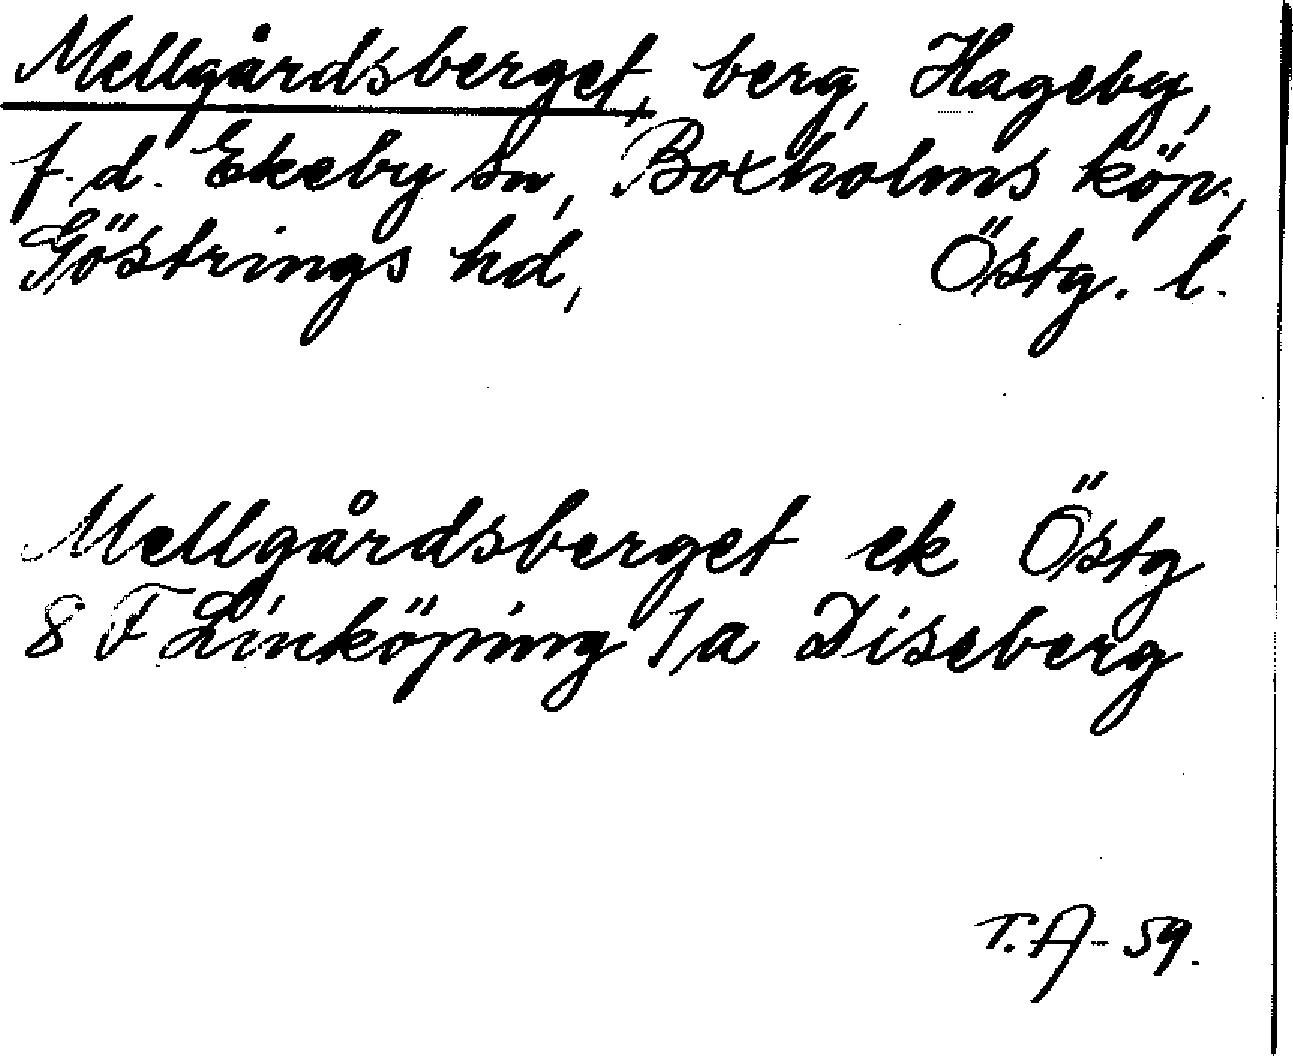 Mellgårdsberget, berg, Hageby,
f.d. Ekeby sn, Boxholms köp.,
Göstrings hd, Östg. l.
Mellgårdsberget ek Östg
8 F Linköping 1a Diseberg
T.A-59.